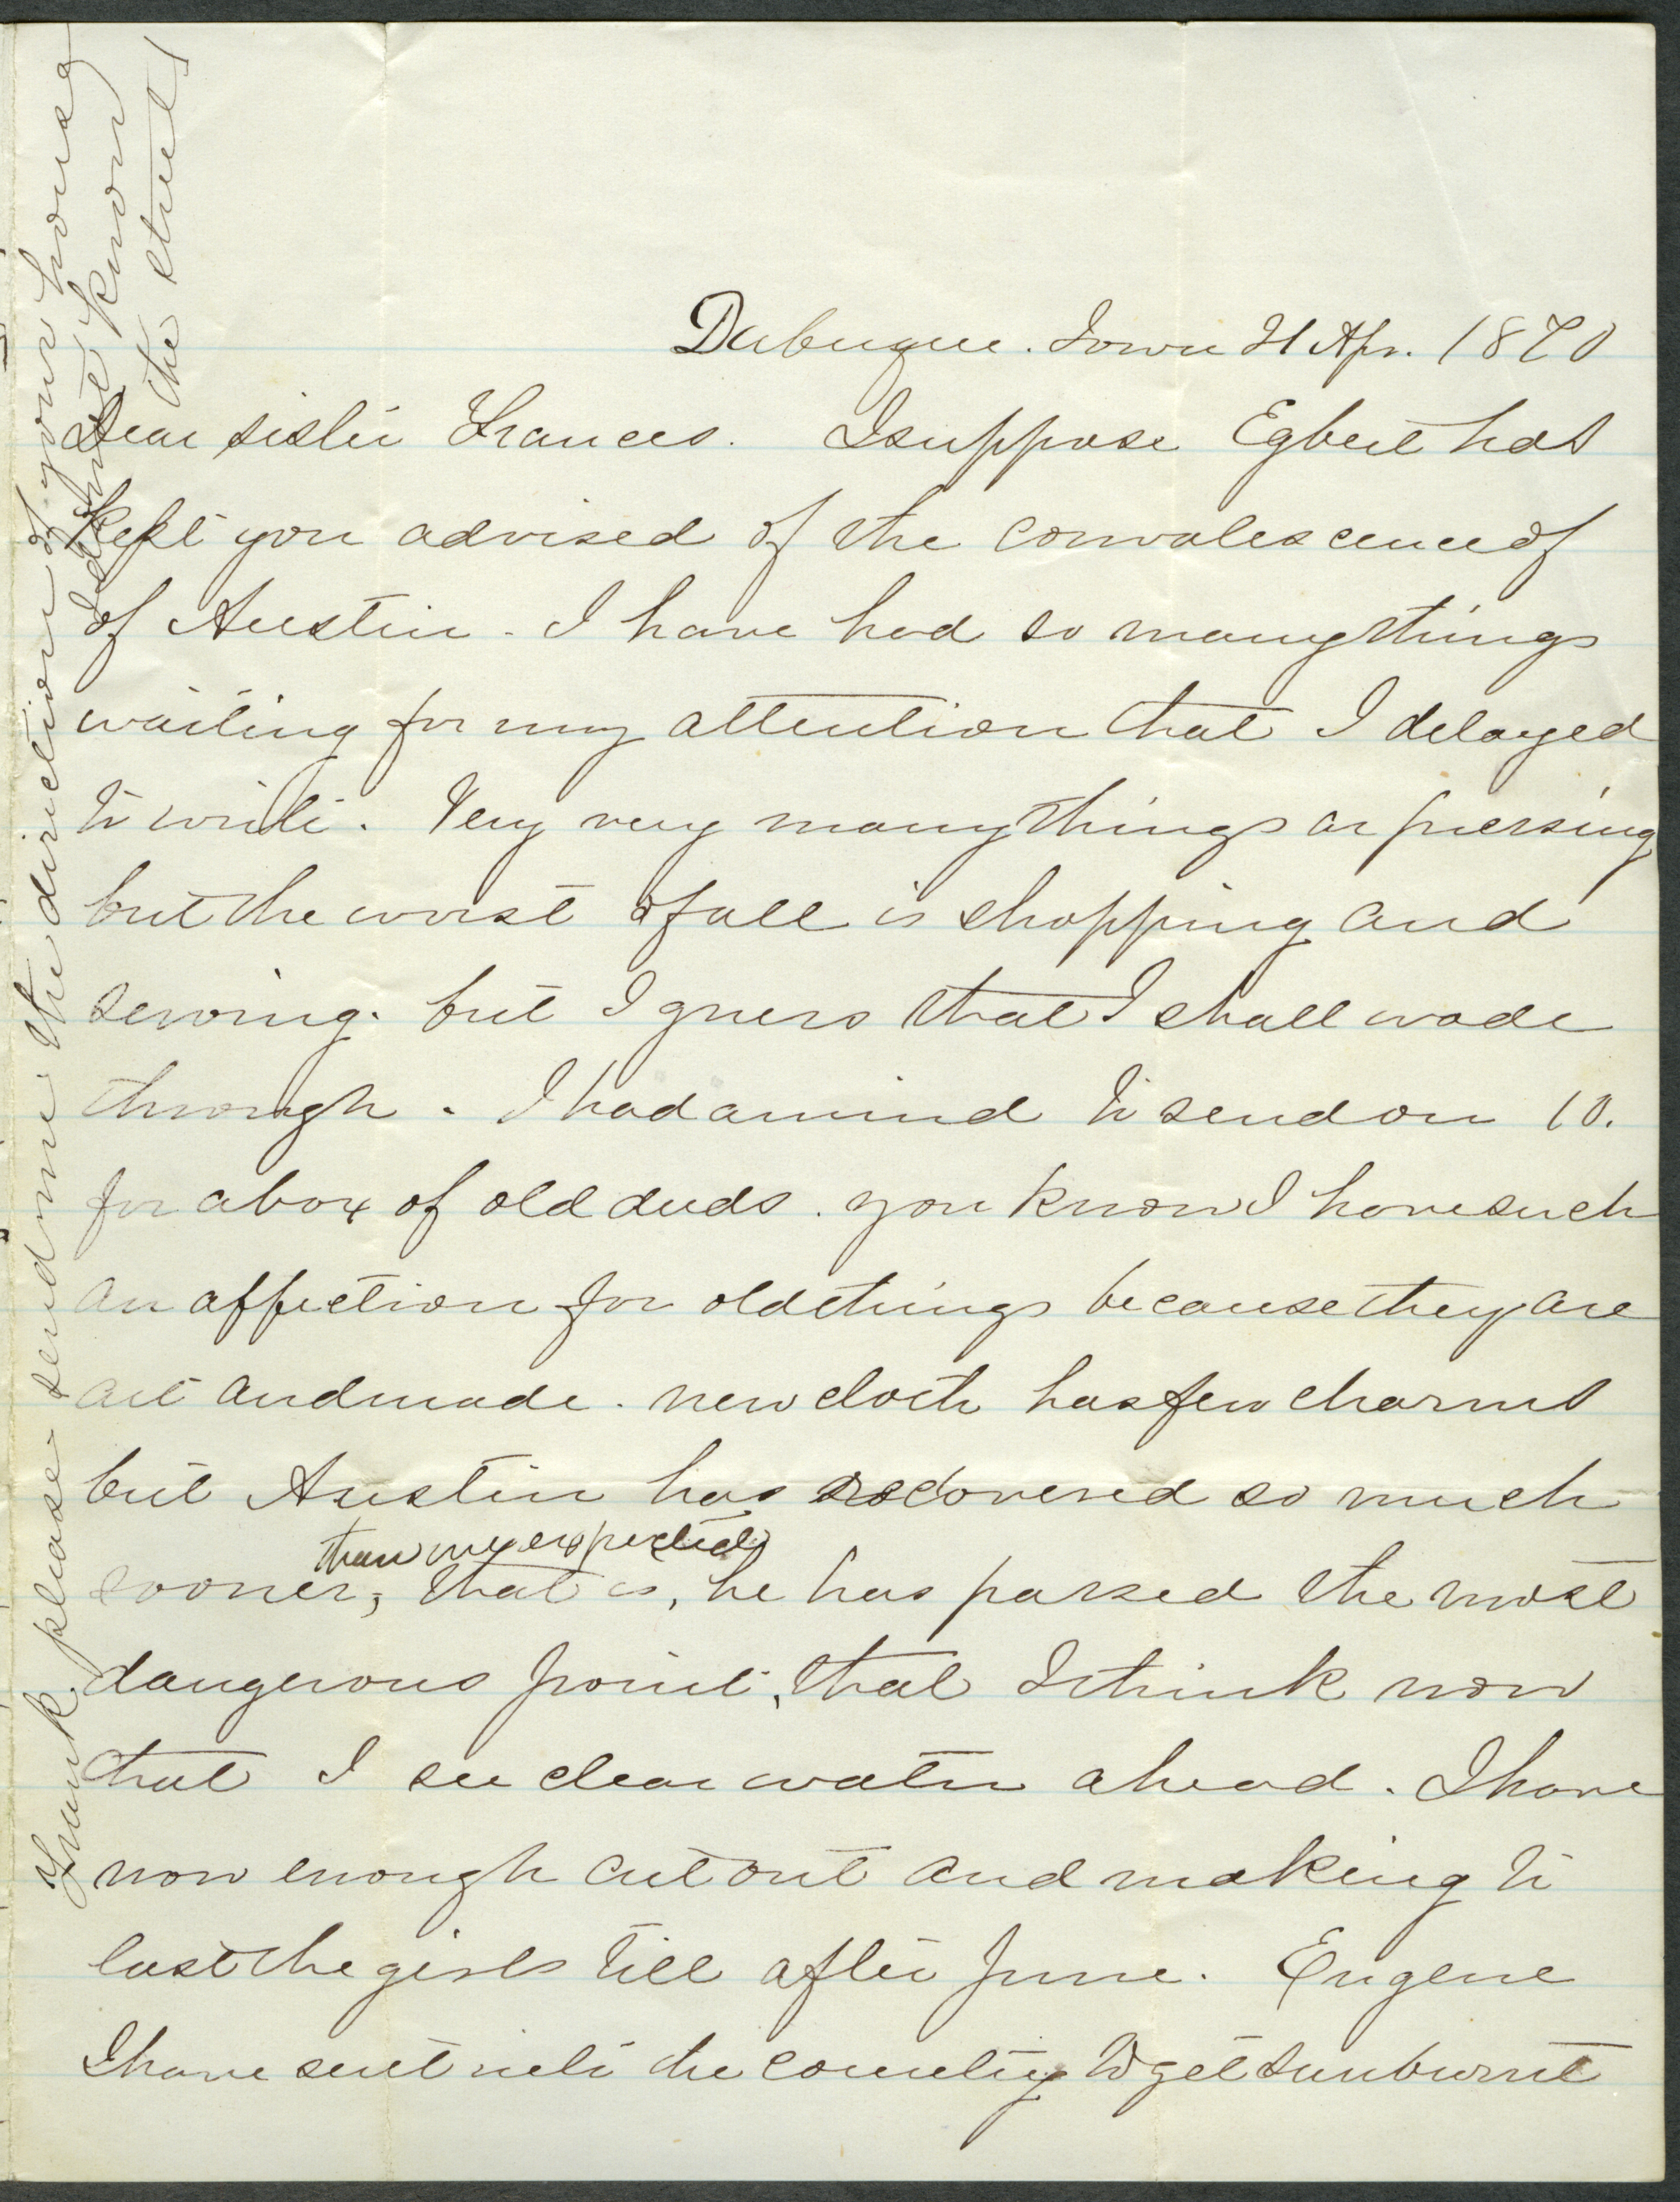 Dubuque. Iowa 21 Apr. 1870
Dear sister Frances. I suppose Egbert has
kept you advised of the convalescence of
of Austin. I have had so many things
waiting for my attention that I delayed
to write. Very very many things ar pressing
but the worst of all is shopping and
sewing. but I guess that I shall wade
through. I had a mind to send on 10.
for a box of old duds. you know I have such
an affection for old things because they are
cut and made. new cloth has few charms
but Austin has recovered so much
than we expected
sooner, that is, he has passed the most
dangerous point, that I think now
that I see clear water ahead. I have
now enough cut out and making to
last the girls till after June. Eugene
I have sent into the country to get sunburnt
Frank please send me the direction of your house
I do not know
the street